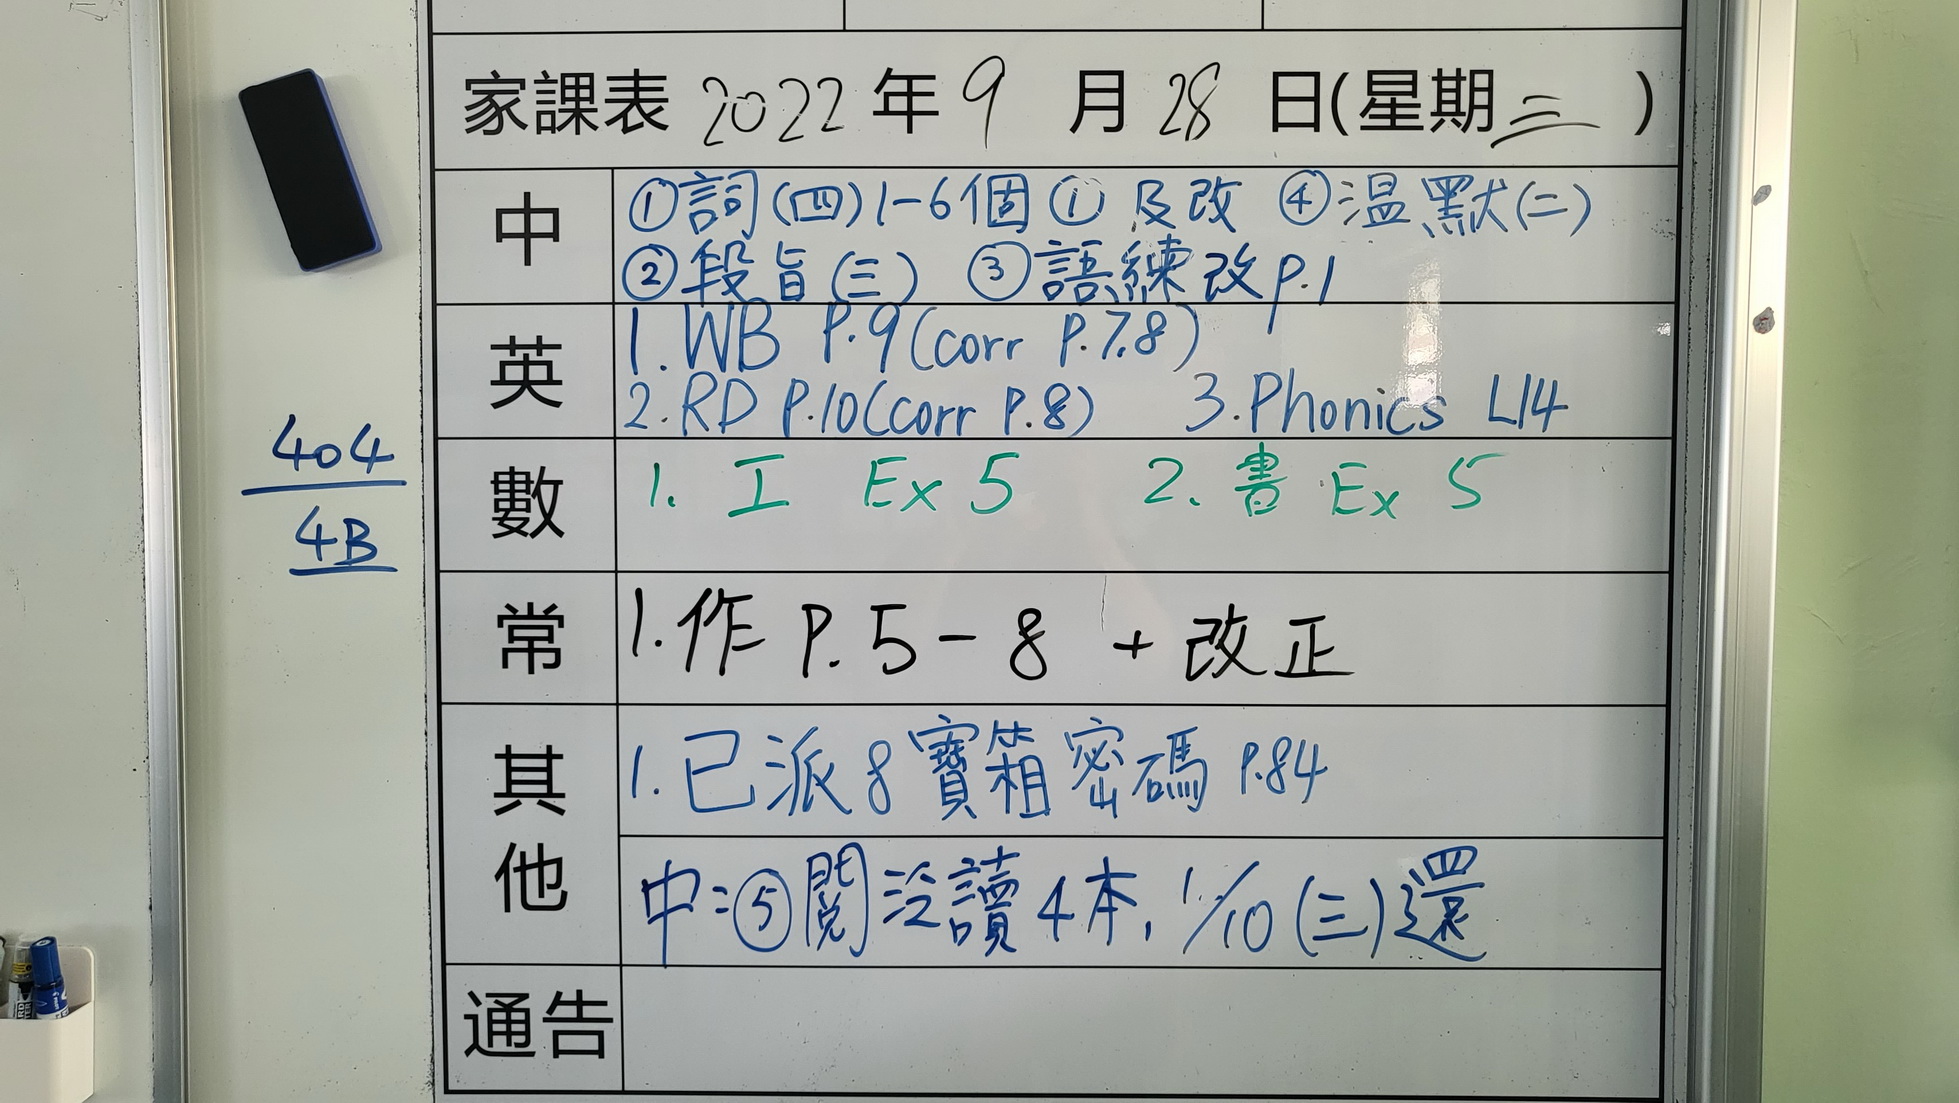 家課表 2022 年 9 月 28 日(星期三)
中
①詞(四)1-6個① 及改 ④温默(二)
②段旨(三) ③語練改p.1
英
1.WB P.9(corr P.7,8)
2.RD P.10(corr P.8) 3.Phonics L14
404
4B
數
1. 工 Ex 5 2. 書 Ex 5
常
1.作 P.5-8 + 改正
其他
1.已派8寶箱密碼 P.84
中:⑤閱泛讀4本,1/10(三)還
通告